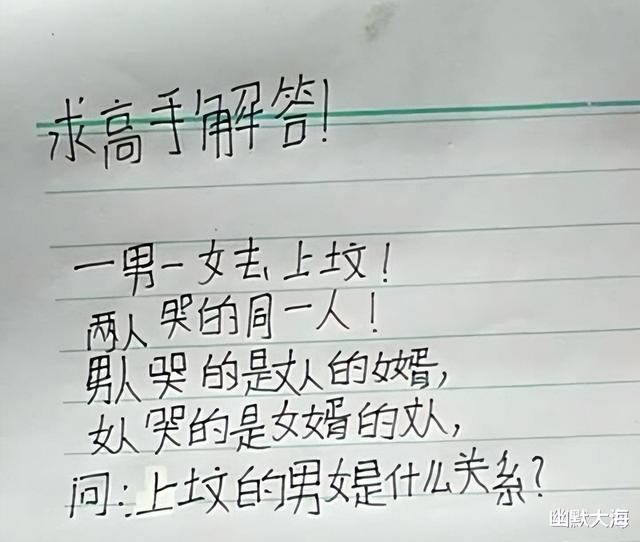 求高手解答!
一男一女去上坟!
两人哭的同一人!
男人哭的是丈人的女婿,
女人哭的是女婿的丈人,
问:上坟的男女是什么关系?
幽默大海